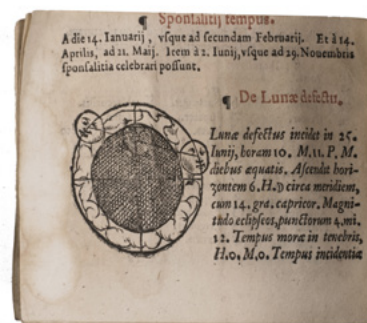 ¶ Sponsalitij tempus.
A die 14. Ianuarij, vsque ad secundam Februarij. Et à 14.
Aprilis, ad 21. Maij. Item à 2. Iunij, vsque ad 29. Nouembris
sponsalitia celebrari possunt.
¶ De Lunæ defectu.
Lunæ defectus incidet in 25.
Iunij, horam 10. M. 11. P. M.
diebus æquatis. Ascendit hori-
zontem 6. H. ☽ circa meridiem,
cum 14. gra. capricor. Magni-
tudo eclipseos, punctorum 4. mi.
12. Tempus moræ in tenebris,
H. 0, M. 0. Tempus incidentiæ